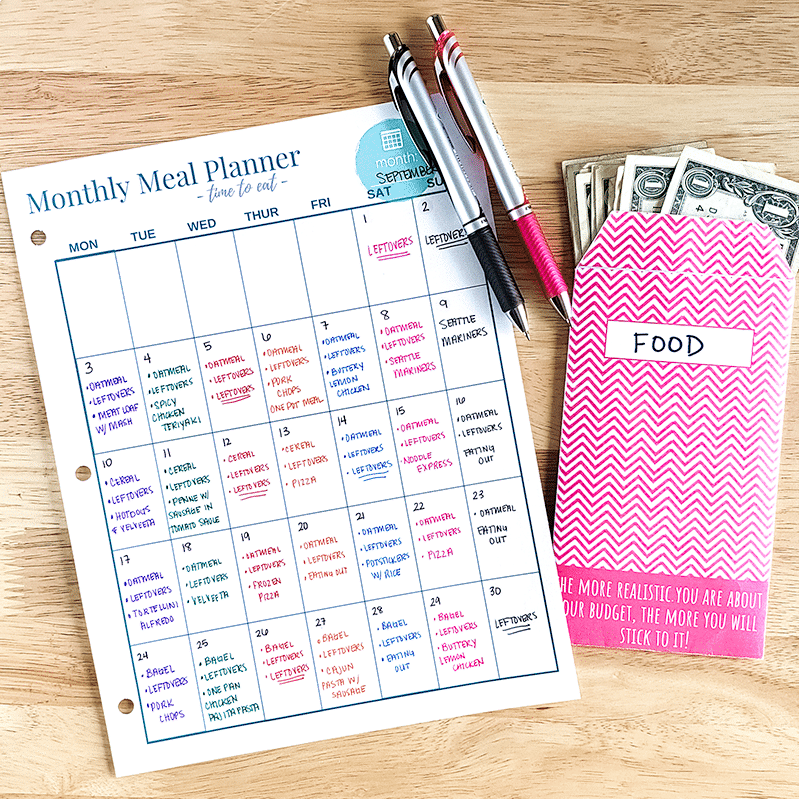 Monthly Meal Planner
- time to eat -
month:
SEPTEMBER
MON TUE WED THUR FRI SAT SU
1
LEFTOVERS
2
LEFTOVERS
3
• OATMEAL
• LEFTOVERS
• MEAT LOAF
W/ MASH
4
• OATMEAL
• LEFTOVERS
• SPICY
CHICKEN
TERIYAKI
5
• OATMEAL
• LEFTOVERS
• LEFTOVERS
6
• OATMEAL
• LEFTOVERS
• PORK
CHOPS
ONE POT MEAL
7
• OATMEAL
• LEFTOVERS
• BUTTERY
LEMON
CHICKEN
8
• OATMEAL
• LEFTOVERS
• SEATTLE
MARINERS
9
SEATTLE
MARINERS
10
• CEREAL
• LEFTOVERS
• HOTDOGS
& VELVEETA
11
• CEREAL
• LEFTOVERS
• PENNE W/
SAUSAGE IN
TOMATO SAUCE
12
• CEREAL
• LEFTOVERS
• LEFTOVERS
13
• CEREAL
• LEFTOVERS
• PIZZA
14
• OATMEAL
• LEFTOVERS
• LEFTOVERS
15
• OATMEAL
• LEFTOVERS
• NOODLE
EXPRESS
16
• OATMEAL
• LEFTOVERS
• EATING
OUT
17
• OATMEAL
• LEFTOVERS
• TORTELLINI
ALFREDO
18
• OATMEAL
• LEFTOVERS
• VELVEETA
19
• OATMEAL
• LEFTOVERS
• FROZEN
PIZZA
20
• OATMEAL
• LEFTOVERS
• EATING OUT
21
• OATMEAL
• LEFTOVERS
• POTSTICKERS
W/ RICE
22
• OATMEAL
• LEFTOVERS
• PIZZA
23
• OATMEAL
• EATING
OUT
24
• BAGEL
• LEFTOVERS
• PORK
CHOPS
25
• BAGEL
• LEFTOVERS
• ONE PAN
CHICKEN
FAJITA PASTA
26
• BAGEL
• LEFTOVERS
• LEFTOVERS
27
• BAGEL
• LEFTOVERS
• CAJUN
PASTA W/
SAUSAGE
28
• BAGEL
• LEFTOVERS
• EATING
OUT
29
• BAGEL
• LEFTOVERS
• BUTTERY
LEMON
CHICKEN
30
LEFTOVERS
1
1
FOOD
THE MORE REALISTIC YOU ARE ABOUT
YOUR BUDGET, THE MORE YOU WILL
STICK TO IT!